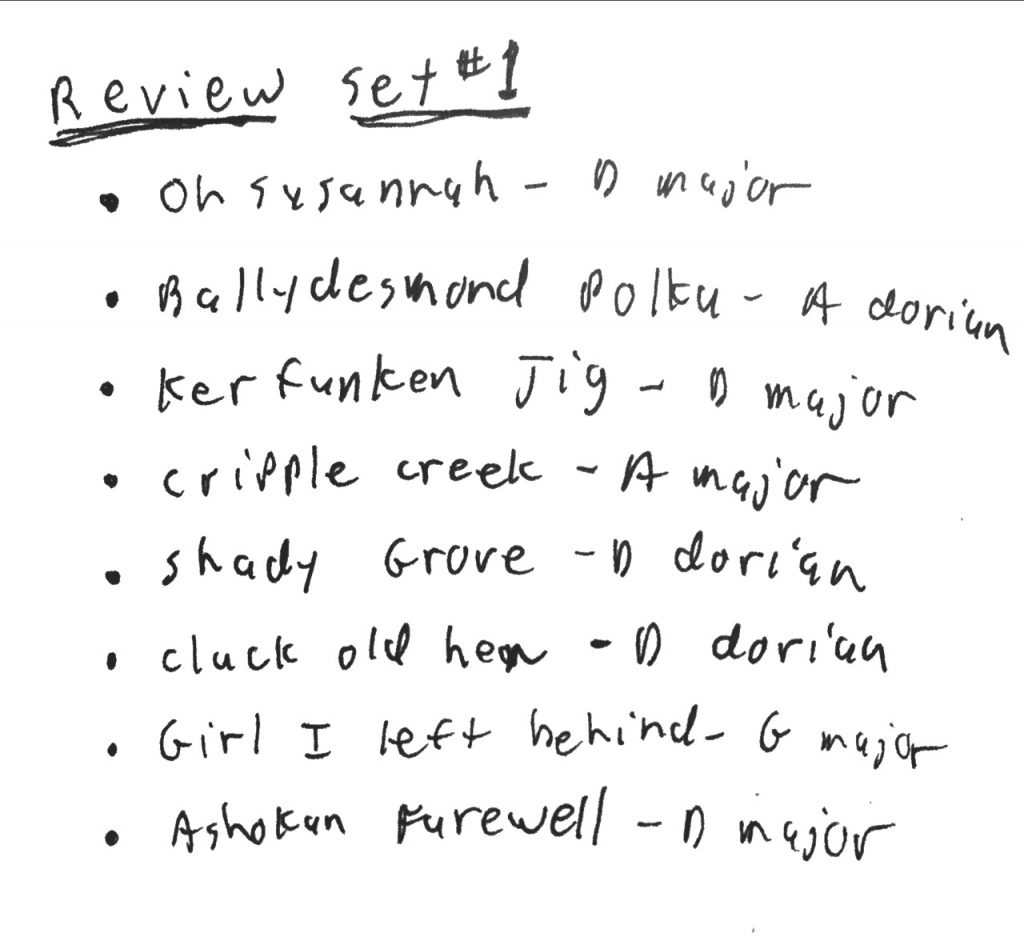 Review set #1
• Oh susannah - D major
• Ballydesmond Polka - A dorian
• Kerfunken Jig - D major
• cripple creek - A major
• shady Grove - D dorian
• cluck old hen - D dorian
• Girl I left behind - G major
• Ashokan Farewell - D major